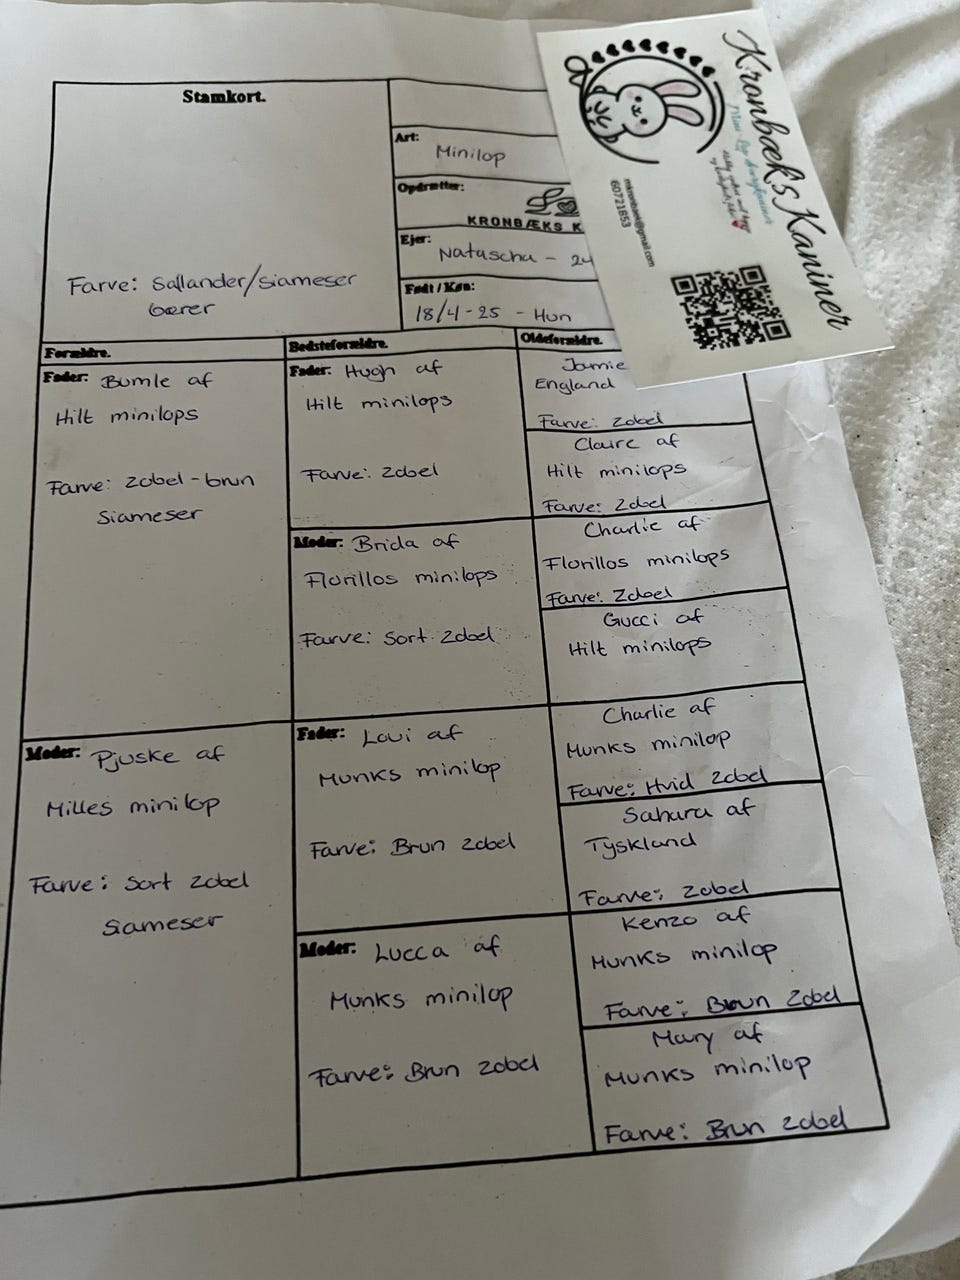 Stamkort.
Farve: Sallander/siameser
bærer
Art:
Minilop
Opdrætter:
KRONBÆKS K
Ejer:
Natascha - 24
Født / Køn:
18/4-25 - Hun
Kronbæks Kaniner
mkronbaek@gmail.com
60721653
Forældre.
Bedsteforældre.
Oldeforældre.
Fader: Bumle af
Hilt minilops
Farve: Zobel-brun
Siameser
Moder: Pjuske af
Milles minilop
Farve: Sort Zobel
Siameser
Fader: Hugh af
Hilt minilops
Farve: Zobel
Moder: Brida af
Florillos minilops
Farve: Sort Zobel
Fader: Loui af
Munks minilop
Farve: Brun Zobel
Moder: Lucca af
Munks minilop
Farve: Brun Zobel
Jamie
England
Farve: Zobel
Claire af
Hilt minilops
Farve: Zobel
Charlie af
Florillos minilops
Farve: Zobel
Gucci af
Hilt minilops
Charlie af
Munks minilop
Farve: Hvid Zobel
Sahara af
Tyskland
Farve: Zobel
Kenzo af
Munks minilop
Farve: Brun Zobel
Mary af
Munks minilop
Farve: Brun Zobel